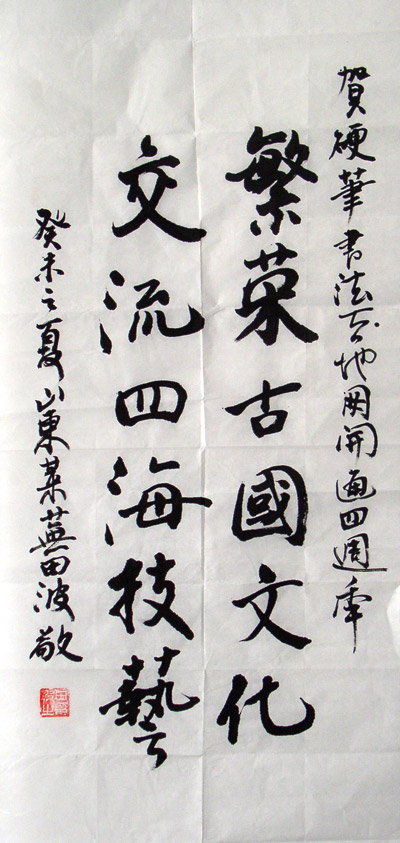 賀硬筆書法天地网開通四週年
繁荣古國文化
交流四海技藝
癸未之夏山東莱蕪田波敬